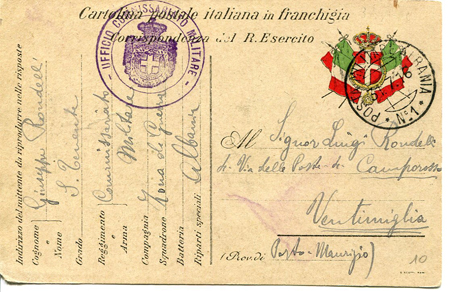 Cartolina postale italiana in franchigia
Corrispondenza del R. Esercito
UFFICIO COMMISSARIATO MILITARE
POSTA ALBANIA
N.º 1
Indirizzo del mittente da riprodurre nelle risposte
Cognome Rondelli
Nome Giuseppe
Grado S. Tenente
Reggimento Commissariato
Arma Militare
Compagnia Zona di Guerra
Squadrone
Batteria Albania
Riparti speciali
Al Signor Luigi Rondelli
Via delle Poste di Camporosso
Ventimiglia
(Prov. di Porto-Maurizio)
10